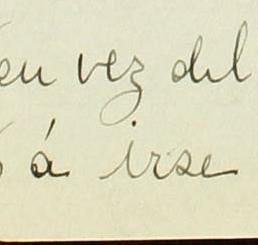 en vez del
á irse